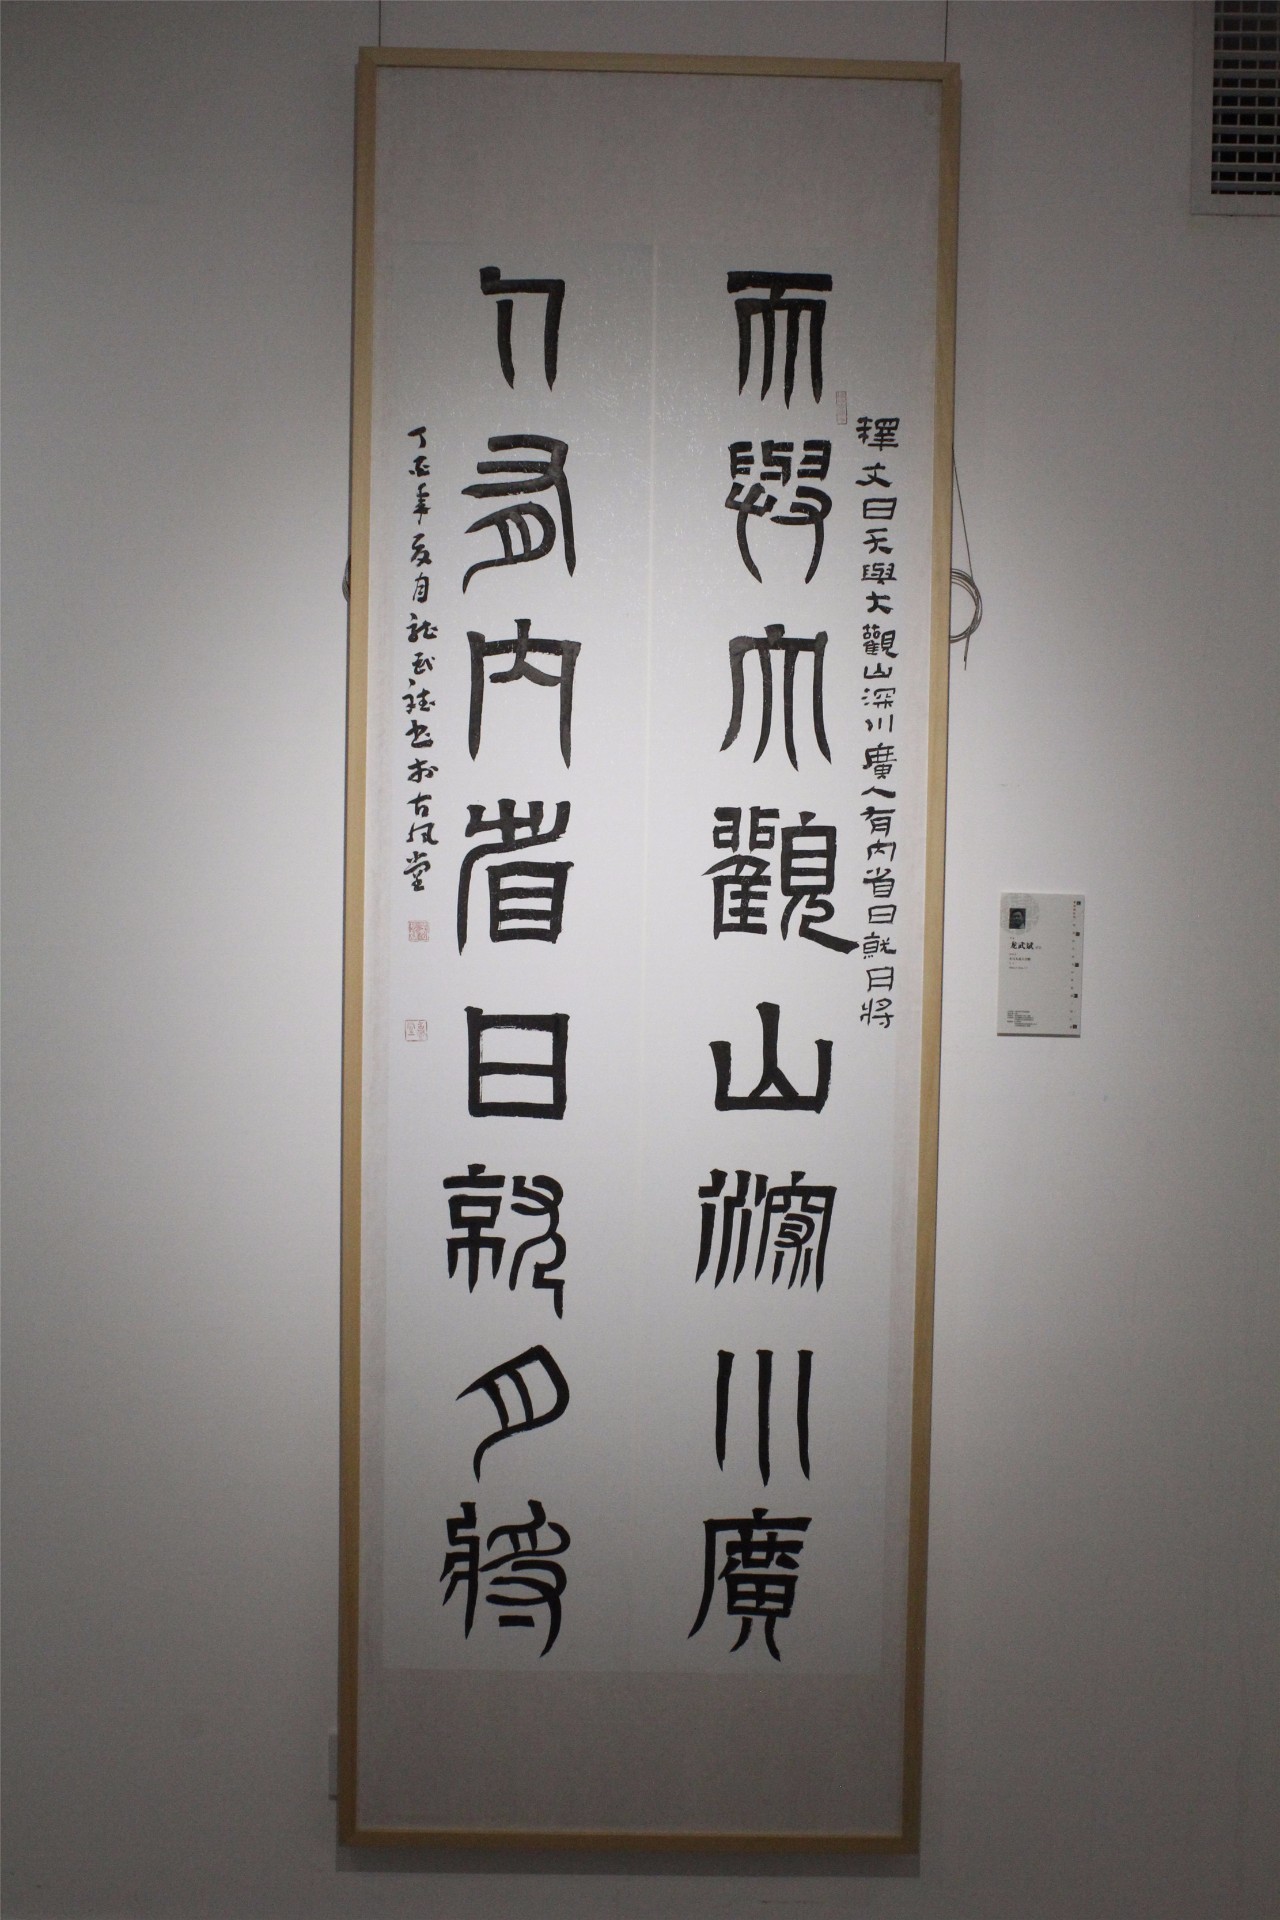 釋文曰天與大觀山深川廣人有内省日就月將
而與大觀山深川廣
人有内省日就月將
丁酉年夏月龍武斌書於古風堂
龙武斌